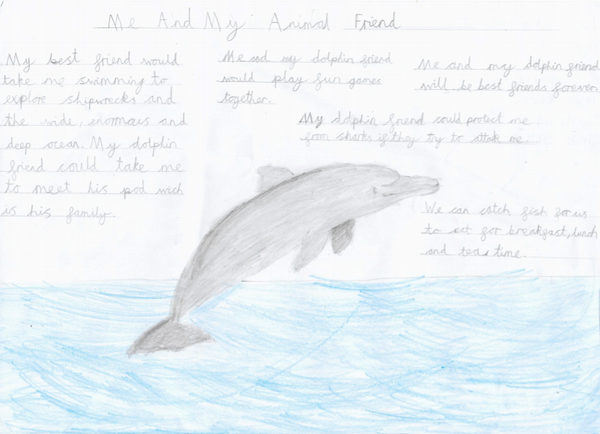 Me And My Animal Friend
My best friend would
take me swimming to
explore shipwrecks and
the wide, enormaes and
deep ocean. My dolphin
friend could take me
to meet his pod wich
is his family.
Me and my dolphin friend
would play fun games
together.
Me and my dolphin friend
will be best friends forever.
My dolphin friend could protect me
from sharks if they try to attak me.
We can catch fish for us
to eat for breakfast, lunch
and tea time.